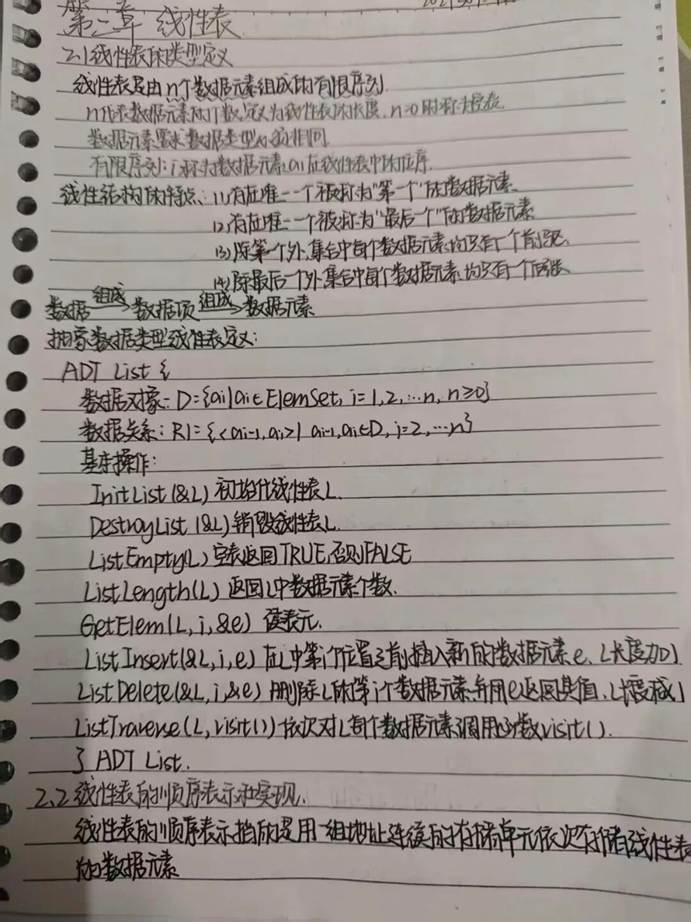 第二章 线性表
2.1线性表的类型定义
线性表是由n个数据元素组成的有限序列
n代表数据元素的个数,定义为线性表的长度,n=0时称为空表
数据元素要求数据类型必须相同
有限序列:i称为数据元素ai在线性表中的位序
线性结构的特点: (1)有且唯一一个被称为"第一个"的数据元素
(2)有且唯一一个被称为"最后一个"的数据元素
(3)除第一个外,集合中每个数据元素均只有一个前驱
(4)除最后一个外,集合中每个数据元素均只有一个后继
数据 组成→ 数据项 组成→ 数据元素
抽象数据类型线性表定义:
ADT List {
数据对象: D={ai|ai∈ElemSet, i=1,2,…n, n≥0}
数据关系: R1={<ai-1,ai>| ai-1,ai∈D, i=2,…n}
基本操作:
InitList(&L) 初始化线性表L
DestroyList(&L)销毁线性表L
ListEmpty(L) 空表返回TRUE,否则FALSE
ListLength(L) 返回L中数据元素个数
GetElem(L,i,&e) 读表元
ListInsert(&L,i,e) 在L中第i个位置之前插入新的数据元素e, L长度加1
ListDelete(&L,i,&e) 删除L的第i个数据元素,并用e返回其值,L长度减1
ListTraverse(L,visit()) 依次对L每个数据元素调用函数visit().
} ADT List.
2.2线性表的顺序表示和实现.
线性表的顺序表示指的是用一组地址连续的存储单元依次存储线性表
的数据元素